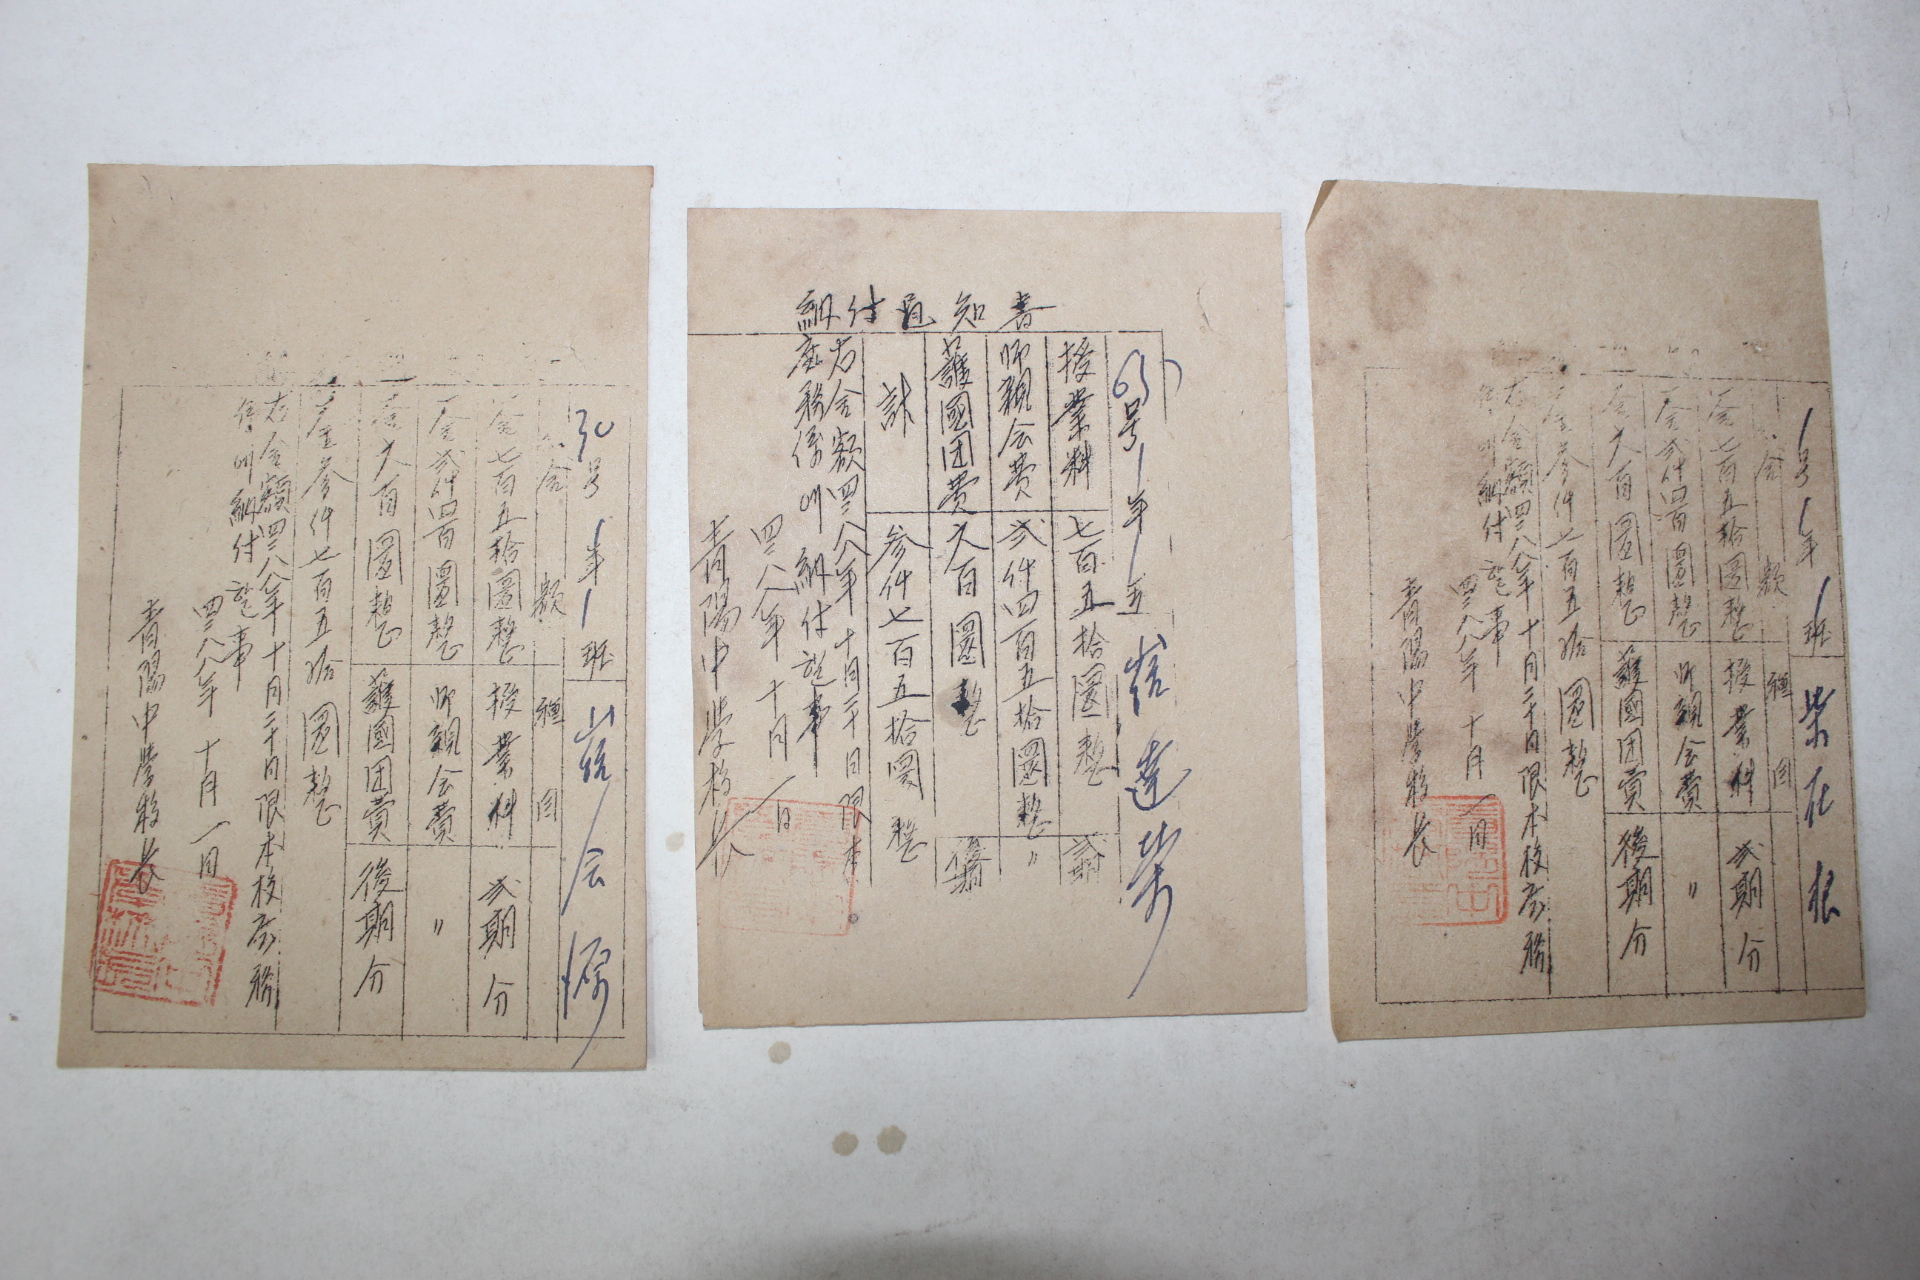 30号 1年 1班
金額 種目
金七百五拾圓整 授業料 弐期分
金弐仟四百圓整 師親会費 〃
金六百圓整 護國团費 後期分
金參仟七百五拾圓整
右金額四二八八年十月二十日限本校庶務
係에納付할事
四二八八年 十月 一日
青陽中学校長
納付通知書
63号 1年 1 崔達榮
授業料 七百五拾圓整 弐期
師親会費 弐仟四百五拾圓整 〃
護國团費 六百圓整 後期
計 參仟七百五拾圓整
右金額四二八八年十月二十日限本
庶務係에納付할事
四二八八年 十月 一日
青陽中学校長
1号 1年 1班 在根
金額 種目
金七百五拾圓整 授業料 弐期分
金弐仟四百圓整 師親会費 〃
金六百圓整 護國团費 後期分
金參仟七百五拾圓整
右金額四二八八年十月二十日限本校庶務
係에納付할事
四二八八年 十月 一日
青陽中学校長